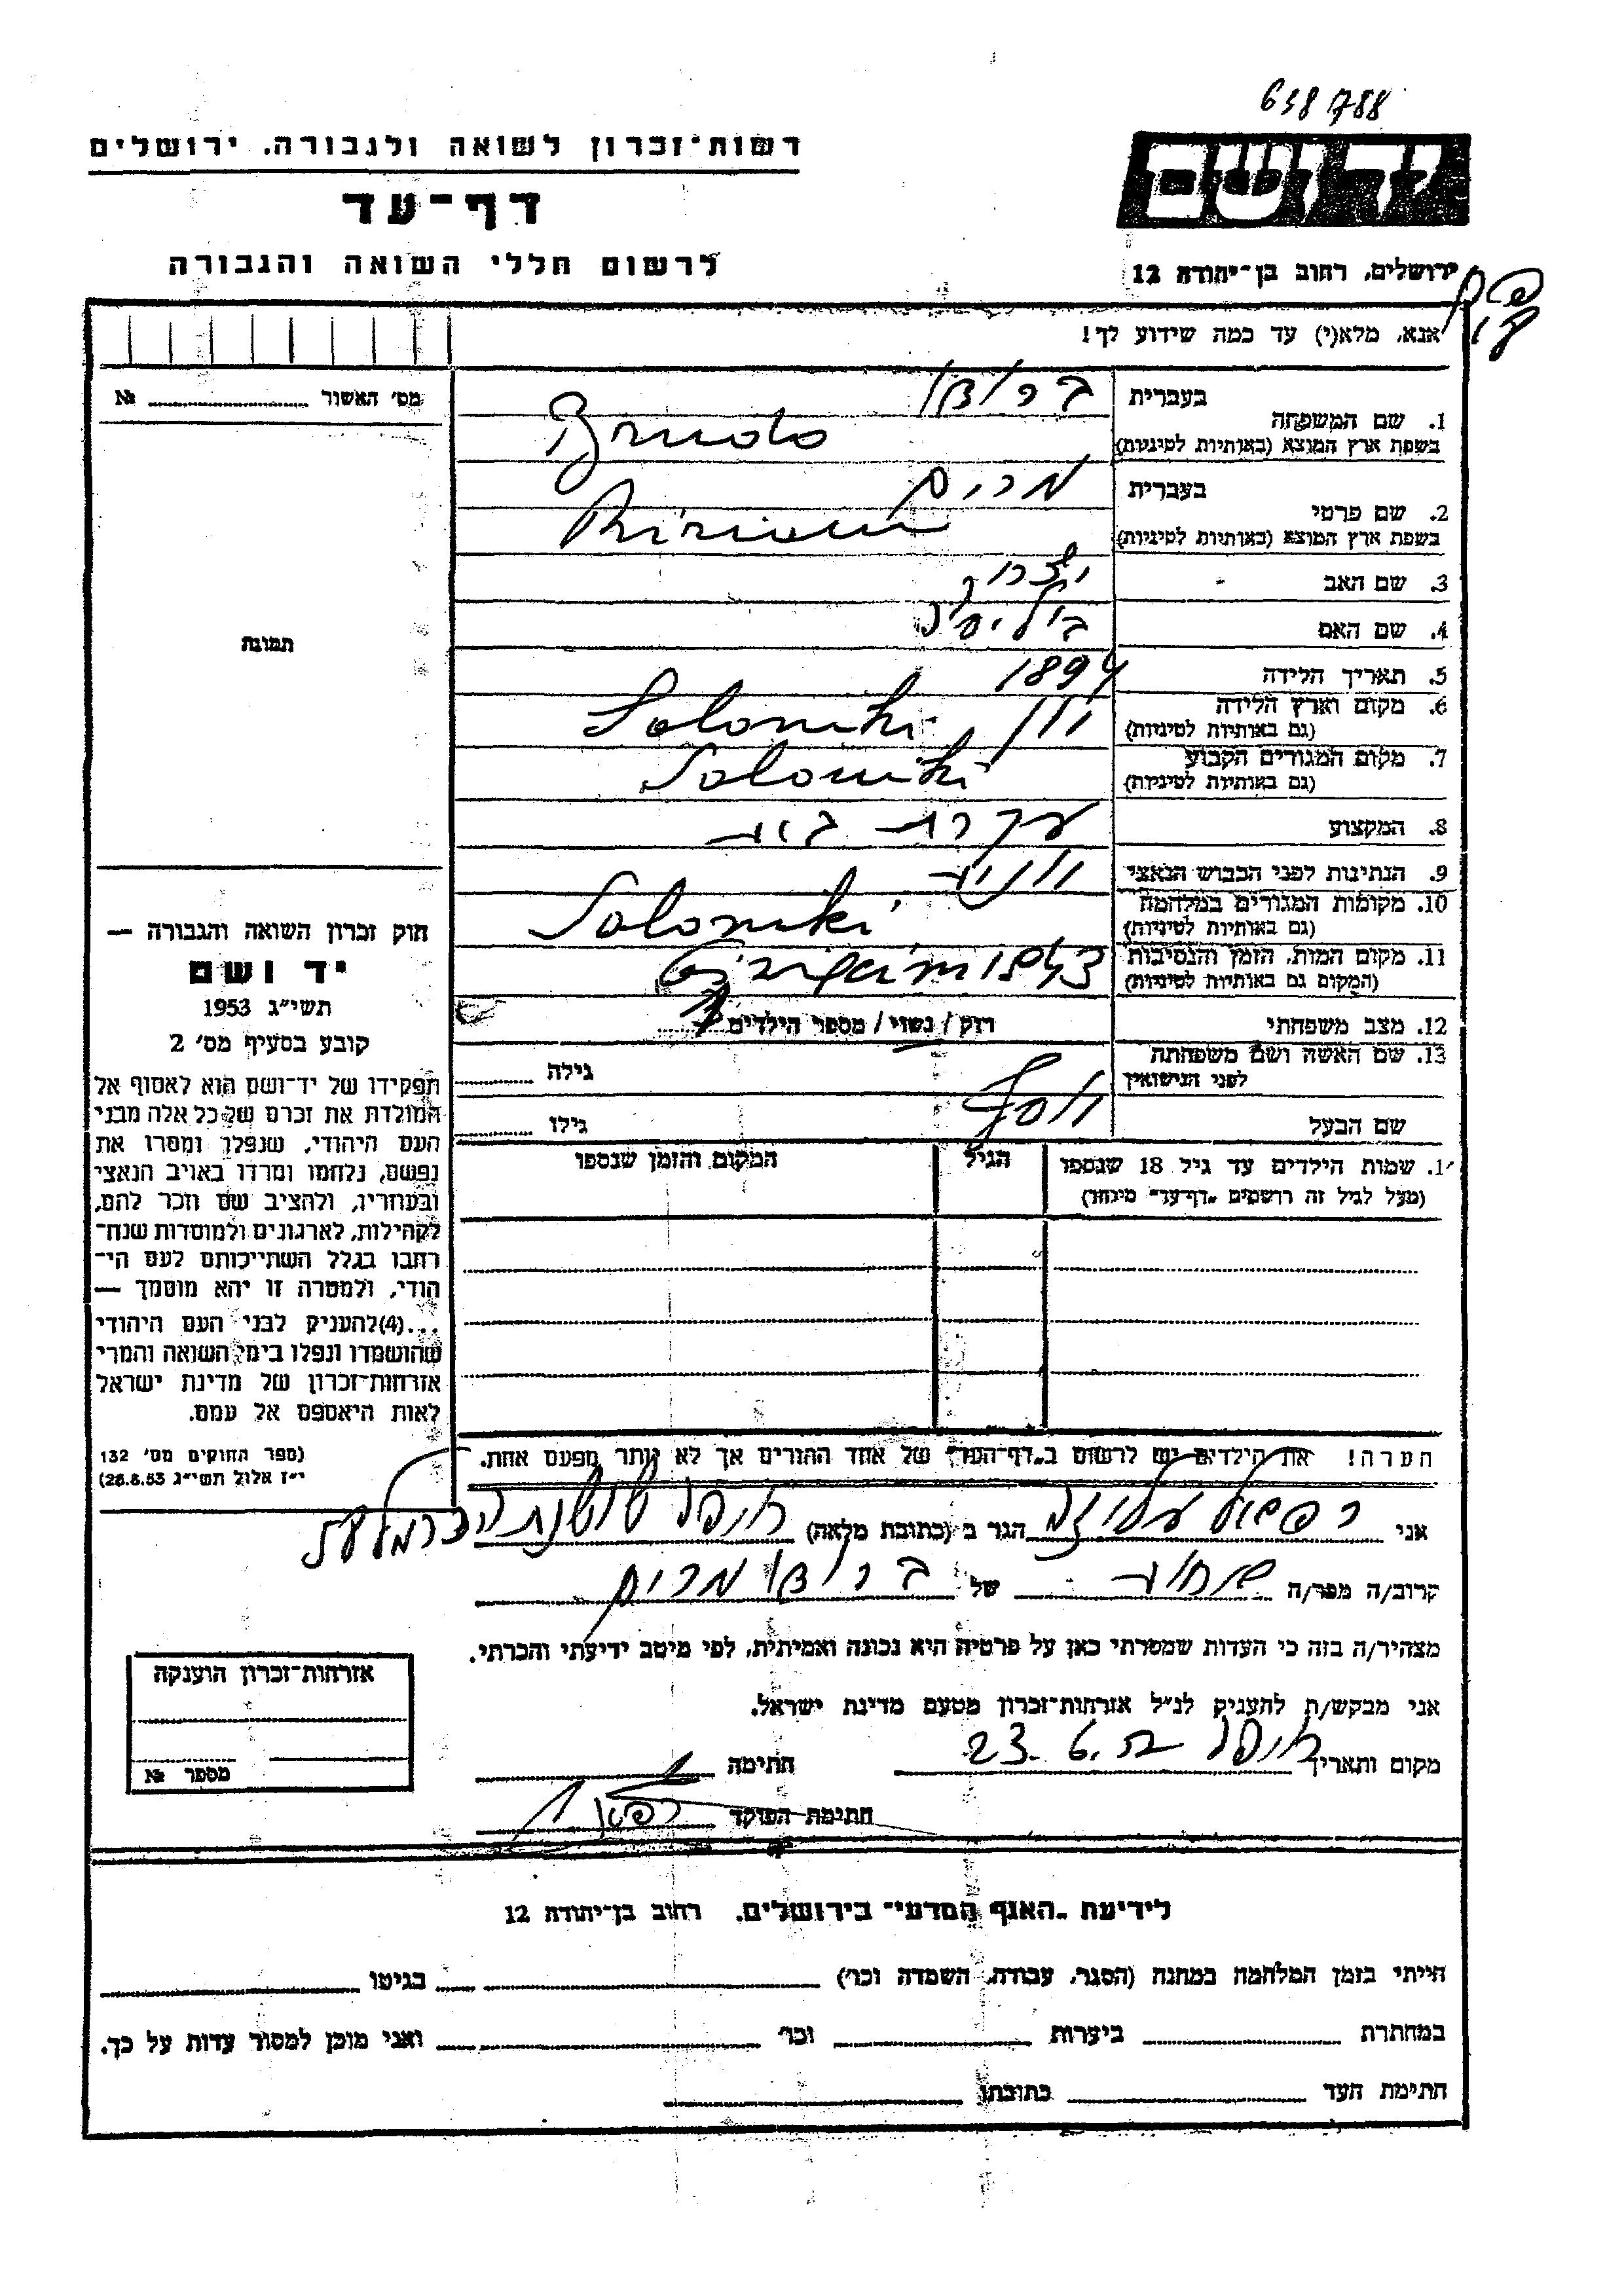 638788
רשות-זכרון לשואה ולגבורה. ירושלים
דף-עד
לרשום חללי השואה והגבורה
ידושם
ירושלים, רחוב בן-יהודה 12
אנא, מלא(י) עד כמה שידוע לך!
מס׳ האשור № 
תמונה
1. שם המשפחה
בעברית ברודו
בשפת ארץ המוצא (באותיות לטיניות) Brudo
2. שם פרטי
בעברית מרים
בשפת ארץ המוצא (באותיות לטיניות)
3. שם האב
4. שם האם
5. תאריך הלידה 1894
6. מקום וארץ הלידה
(גם באותיות לטיניות) יוון Saloniki
7. מקום המגורים הקבוע
(גם באותיות לטיניות) Saloniki
8. המקצוע עקרת בית
9. הנתינות לפני הכבוש הנאצי יוונית
10. מקומות המגורים במלחמה
(גם באותיות לטיניות) Saloniki
11. מקום המות, הזמן והנסיבות
(המקום גם באותיות לטיניות)
12. מצב משפחתי רוק / נשוי / מספר הילדים
13. שם האשה ושם משפחתה
לפני הנישואין גילה
שם הבעל יוסף גילו
שמות הילדים עד גיל 18 שנספו הגיל המקום והזמן שנספו
(מעל לגיל זה רושמים „דף-עד״ מיוחד)
הערה! את הילדים יש לרשום ב„דף-העד״ של אחד ההורים אך לא יותר מפעם אחת.
חוק זכרון השואה והגבורה —
יד ושם
תשי״ג 1953
קובע בסעיף מס׳ 2
תפקידו של יד-ושם הוא לאסוף אל
המולדת את זכרם של כל אלה מבני
העם היהודי, שנפלו ומסרו את
נפשם, נלחמו ומרדו באויב הנאצי
ובעוזריו, ולהציב שם וזכר להם,
לקהילות, לארגונים ולמוסדות שנח-
רבו בגלל השתייכותם לעם הי-
הודי, ולמטרה זו יהא מוסמך —
...(4)להעניק לבני העם היהודי
שהושמדו ונפלו בימי השואה והמרי
אזרחות-זכרון של מדינת ישראל
לאות היאספם אל עמם.
(ספר החוקים מס׳ 132
י״ז אלול תשי״ג 28.8.53)
אני רפאל עליזה הגר ב (כתובת מלאה) חיפה שושנת הכרמל
קרוב/ה מפר/ה של ברודו מרים
מצהיר/ה בזה כי העדות שמסרתי כאן על פרטיה היא נכונה ואמיתית, לפי מיטב ידיעתי והכרתי.
אני מבקש/ת להעניק לנ״ל אזרחות-זכרון מטעם מדינת ישראל.
מקום ותאריך חיפה 23.6. חתימה
חתימת הפוקד
אזרחות-זכרון הוענקה
מספר №
לידיעת „האגף המדעי״ בירושלים. רחוב בן-יהודה 12
הייתי בזמן המלחמה במחנה (הסגר, עבודה, השמדה וכו׳) בגיטו
במחתרת ביערות וכו׳ ואני מוכן למסור עדות על כך.
חתימת העד כתובתו